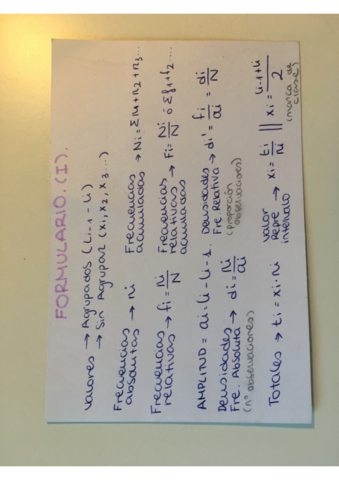 FORMULARIO. (I).
Valores → Agrupados (Li-1 - Li)
→ Sin Agrupar (x1, x2, x3...)
Frecuencias absolutas → ni
Frecuencias acumuladas → Ni = Σ n1 + n2 + n3...
Frecuencias relativas → fi = ni/N
Frecuencias relativas acumuladas → Fi = Ni/N ó Σ f1 + f2...
AMPLITUD = ai = Li - Li-1.
Densidades Fre. Absoluta → di = ni/ai
(nº observaciones)
Densidades Fre Relativa → di' = fi/ai = di/N
(proporción observaciones)
Totales → ti = xi · ni
Valor Repre intervalo → xi = ti/ni || xi = Li-1+Li/2
(marca de clase)